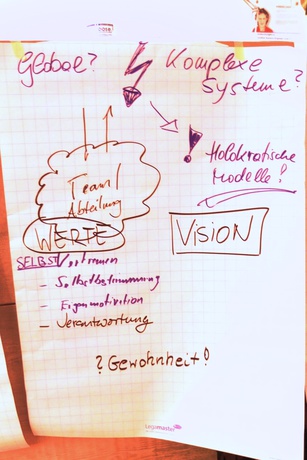 Global?
Komplexe
Systeme?
!
Holokratische
Modelle!
Team/
Abteilung
WERTE
VISION
SELBSTVertrauen
- Selbstbestimmung
- Eigenmotivation
- Verantwortung
? Gewohnheit!
legamaster